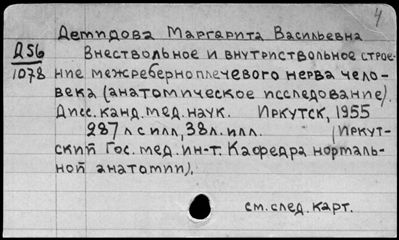 4
Демидова Маргарита Васильевна
Д56
1078
Внествольное и внутриствольное строе-
ние межреберноплечевого нерва чело-
века (анатомическое исследование).
Дисс. канд. мед. наук. Иркутск, 1955
287 л с илл, 38 л. илл. (Иркут-
ский Гос. мед. ин-т. Кафедра нормаль-
ной анатомии).
см. след. карт.